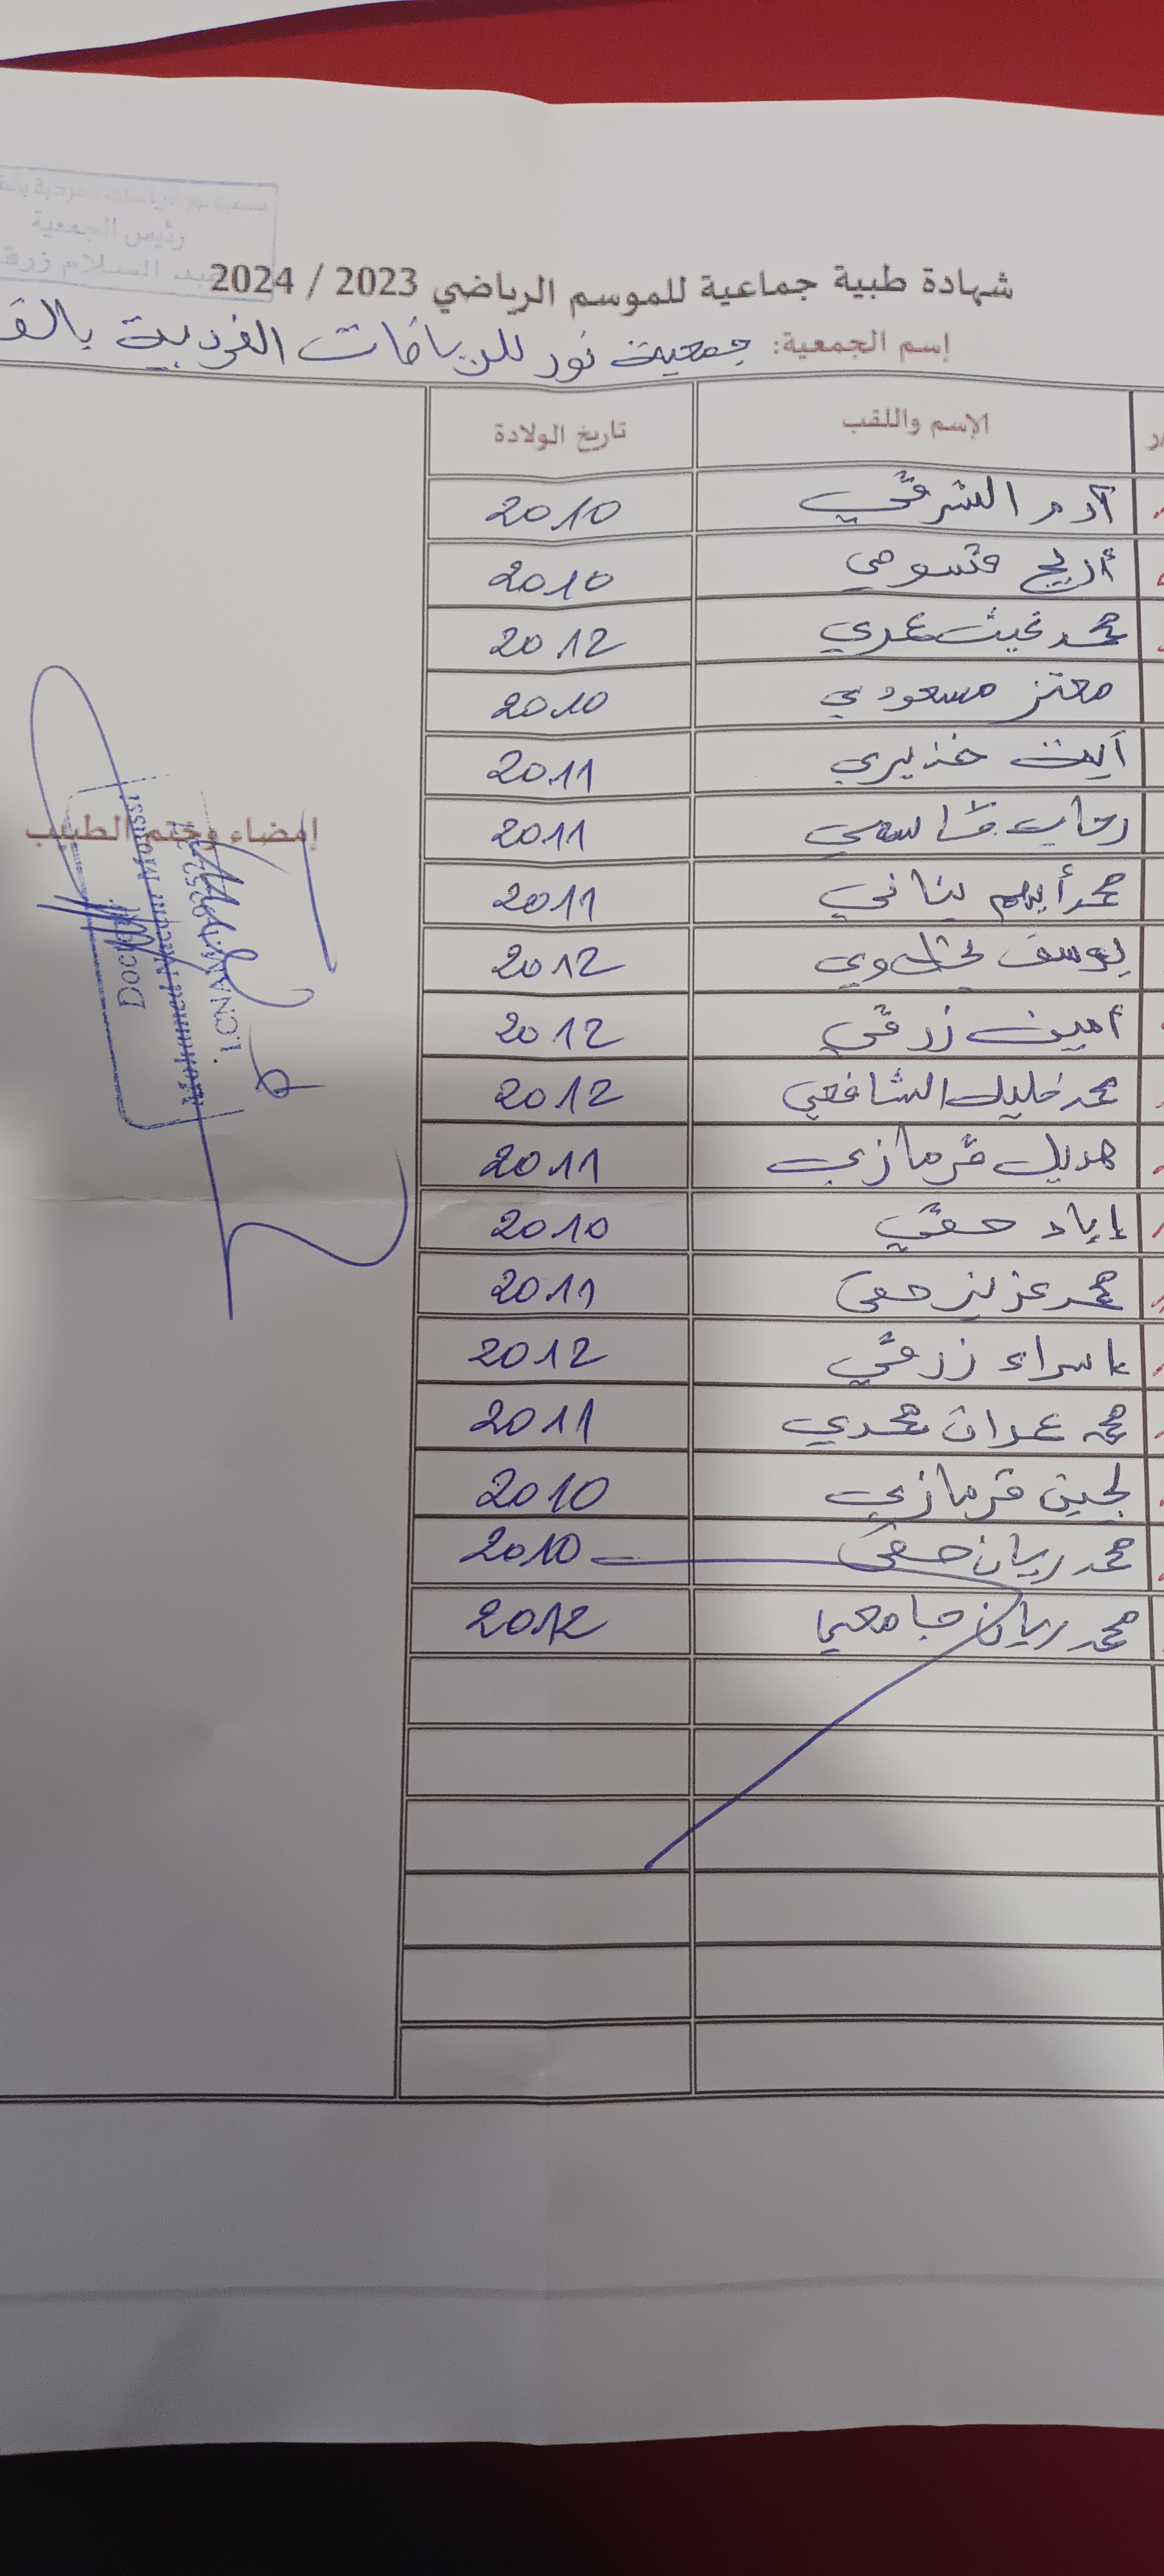 رئيس الجمعية
عبد السلام
شهادة طبية جماعية للموسم الرياضي 2023 / 2024
إسم الجمعية: جمعية نور للرياضات الفردية
الإسم واللقب تاريخ الولادة
آدم الشرقي 2010
أريج قسومي 2010
محمد غيث عمري 2012
معتز مسعودي 2010
آيت خذيري 2011
رحاب قاسمي 2011
محمد أيهم بناني 2011
يوسف 2012
أمين زرقي 2012
محمد خليل الشافعي 2012
هديل قرمازي 2011
إياد حقي 2010
محمد عزيز حقي 2011
إسراء زرقي 2012
محمد عمران محمدي 2011
لجين قرمازي 2010
محمد ريان حقي 2010
محمد ريان جامعي 2012
إمضاء وختم الطبيب
Docteur
Mohamed Nacim